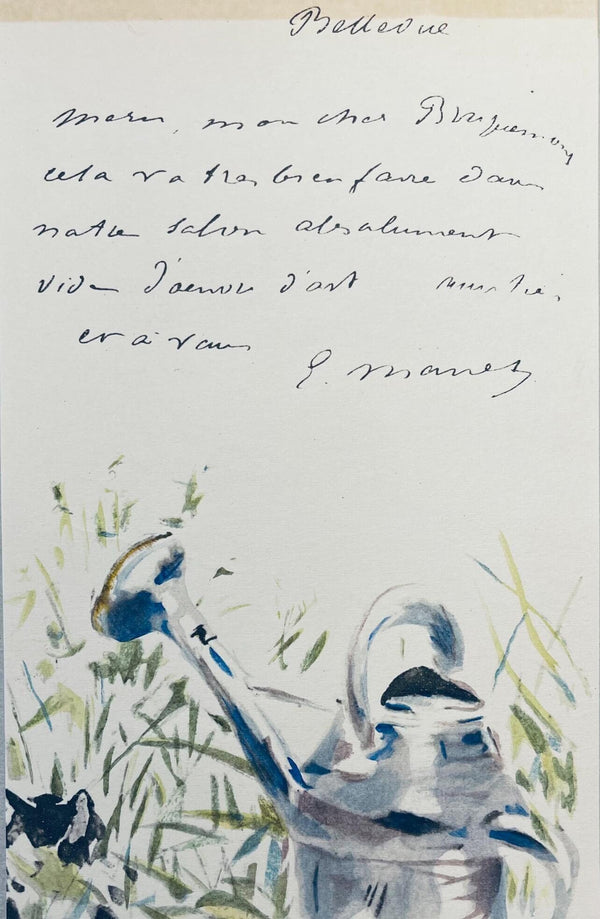 Bellevue
merci, mon cher Bracquemond
cela va tres bien faire dans
notre salon absolument
vide d'œuvres d'art
et à vous
E. Manet